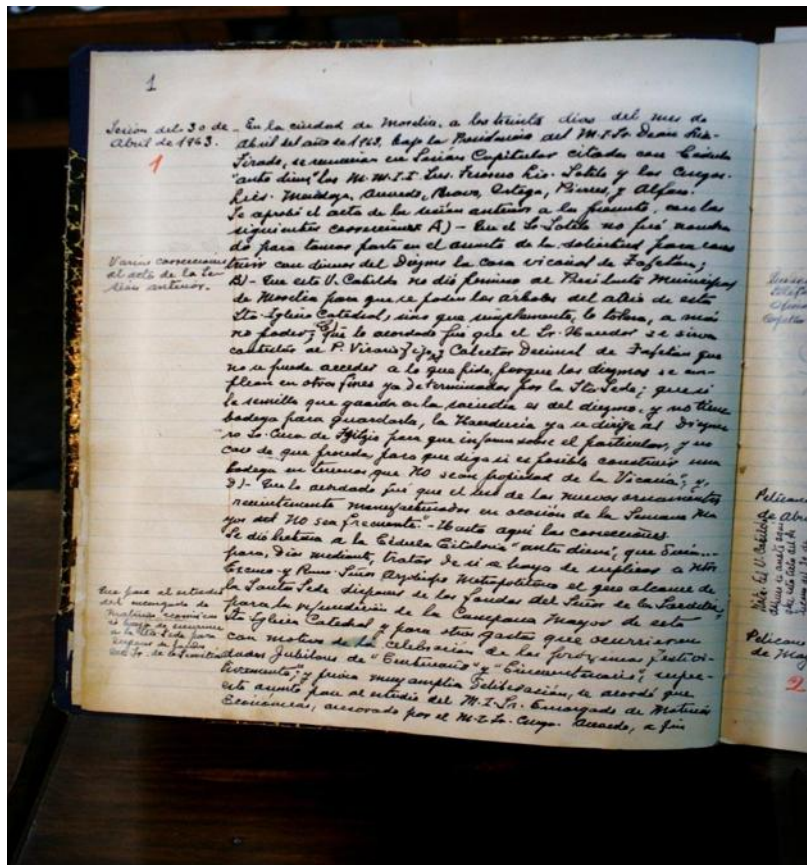 1
Sesion del 30 de
Abril de 1963.
1
En la ciudad de Morelia, a los treinta dias del mes de
Abril del año de 1963, bajo la Presidencia del M. I. Sr. Dean Lic.
Tirado, se reunieron en Sesión Capitular citados con Cédula
"ante diem" los M. M. I. I. Sres. Tesorero Lic. Sotelo y los Cngos.
Lics. Mendoza, Acevedo, Bravo, Ortega, Pinres, y Alfaro.
Se aprobó el acta de la sesión anterior a la presente, con las
siguientes correcciones: A) - Que el Sr. Sotelo no fué nombra
do para tomar parte en el asunto de la solicitud para cons
truir con dinero del Diezmo la casa vicarial de Zafetan;
Varias correcciones
al acta de la Se-
sión anterior.
B) - Que este V. Cabildo no dió permiso al Presidente Municipal
de Morelia para que se poden los árboles del atrio de esta
Sta. Iglesia Catedral, sino que simplemente, lo tolera, a más
no poder; Que lo acordado fué que el Sr. Hacedor se sirva
contestar al P. Vicario Fijo y Colector Decimal de Zafetan que
no se puede acceder a lo que pide, porque los diezmos se em-
plean en otros fines ya determinados por la Sta. Sede; que si
la semilla que guarda en la sacristia es del diezmo, y no tiene
bodega para guardarla, la Hacedería ya se dirige al Diezme
ro Sr. Cura de para que informe sobre el particular, y en
caso de que proceda, para que diga si es posible construir una
bodega en terrenos que NO sean propiedad de la Vicaria"; y,
D) - Que lo acordado fué que el uso de los nuevos ornamentos
recientemente manufacturados en ocasión de la Semana Ma
yor del NO sea frecuente". - Hasta aqui las correcciones.
Se dió lectura a la Cédula Citatoria "ante diem", que
para, Dios mediante, tratar de si se haya de suplicar a Ntro
Excmo. y Rvmo. Señor Arzobispo Metropolitano el que alcance de
la Santa Sede disponer de los fondos del Señor de la Sacristia,
para la refundición de la Campana Mayor de esta
Sta. Iglesia Catedral y para otros gastos que ocurrieran
con motivo de la celebración de las próximas festivi-
dades Jubilares de "Centenario" y "Cincuentenario", respec-
tivamente"; y previa muy amplia deliberación, se acordó que
este asunto pase al estudio del M. I. Sr. Encargado de Materias
Económicas, asesorado por el M. I. Sr. Cngo. Acevedo, a fin
Que pase al estudio
del encargado de
Materias económicas
si haya de recurrirse
a la Sta. Sede para
disponer de fondos
del Sr. de la Sacristia
de Abril
de May
2